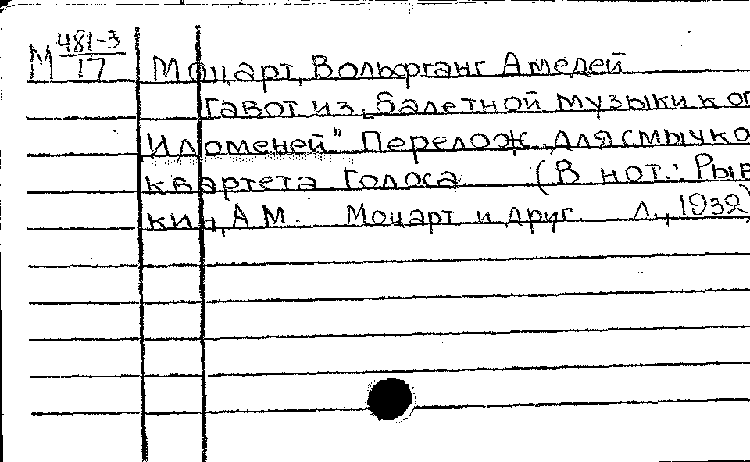 М 481-3
17
Моцарт, Вольфганг Амедей
Гавот из „Балетной музыки к оп
Идоменей" Перелож. для смычко
квартета Голоса (В нот.: Рыв
кин, А М. Моцарт и друг. Л., 1932)